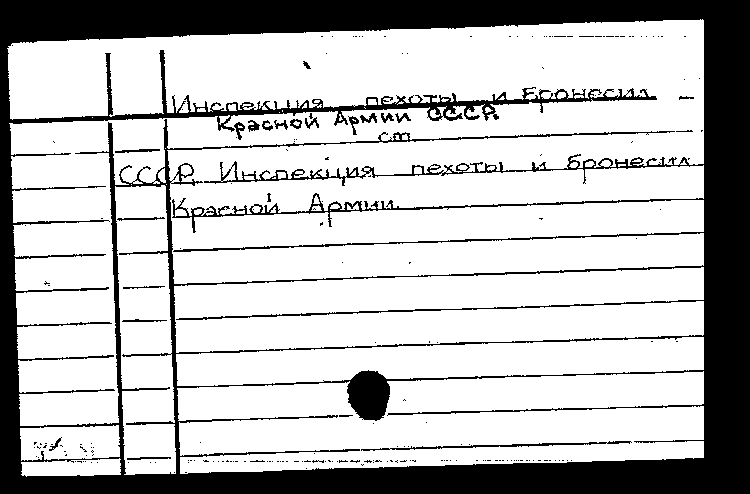 Инспекция пехоты и бронесил
Красной Армии СССР.
ст.
СССР. Инспекция пехоты и бронесил
Красной Армии.